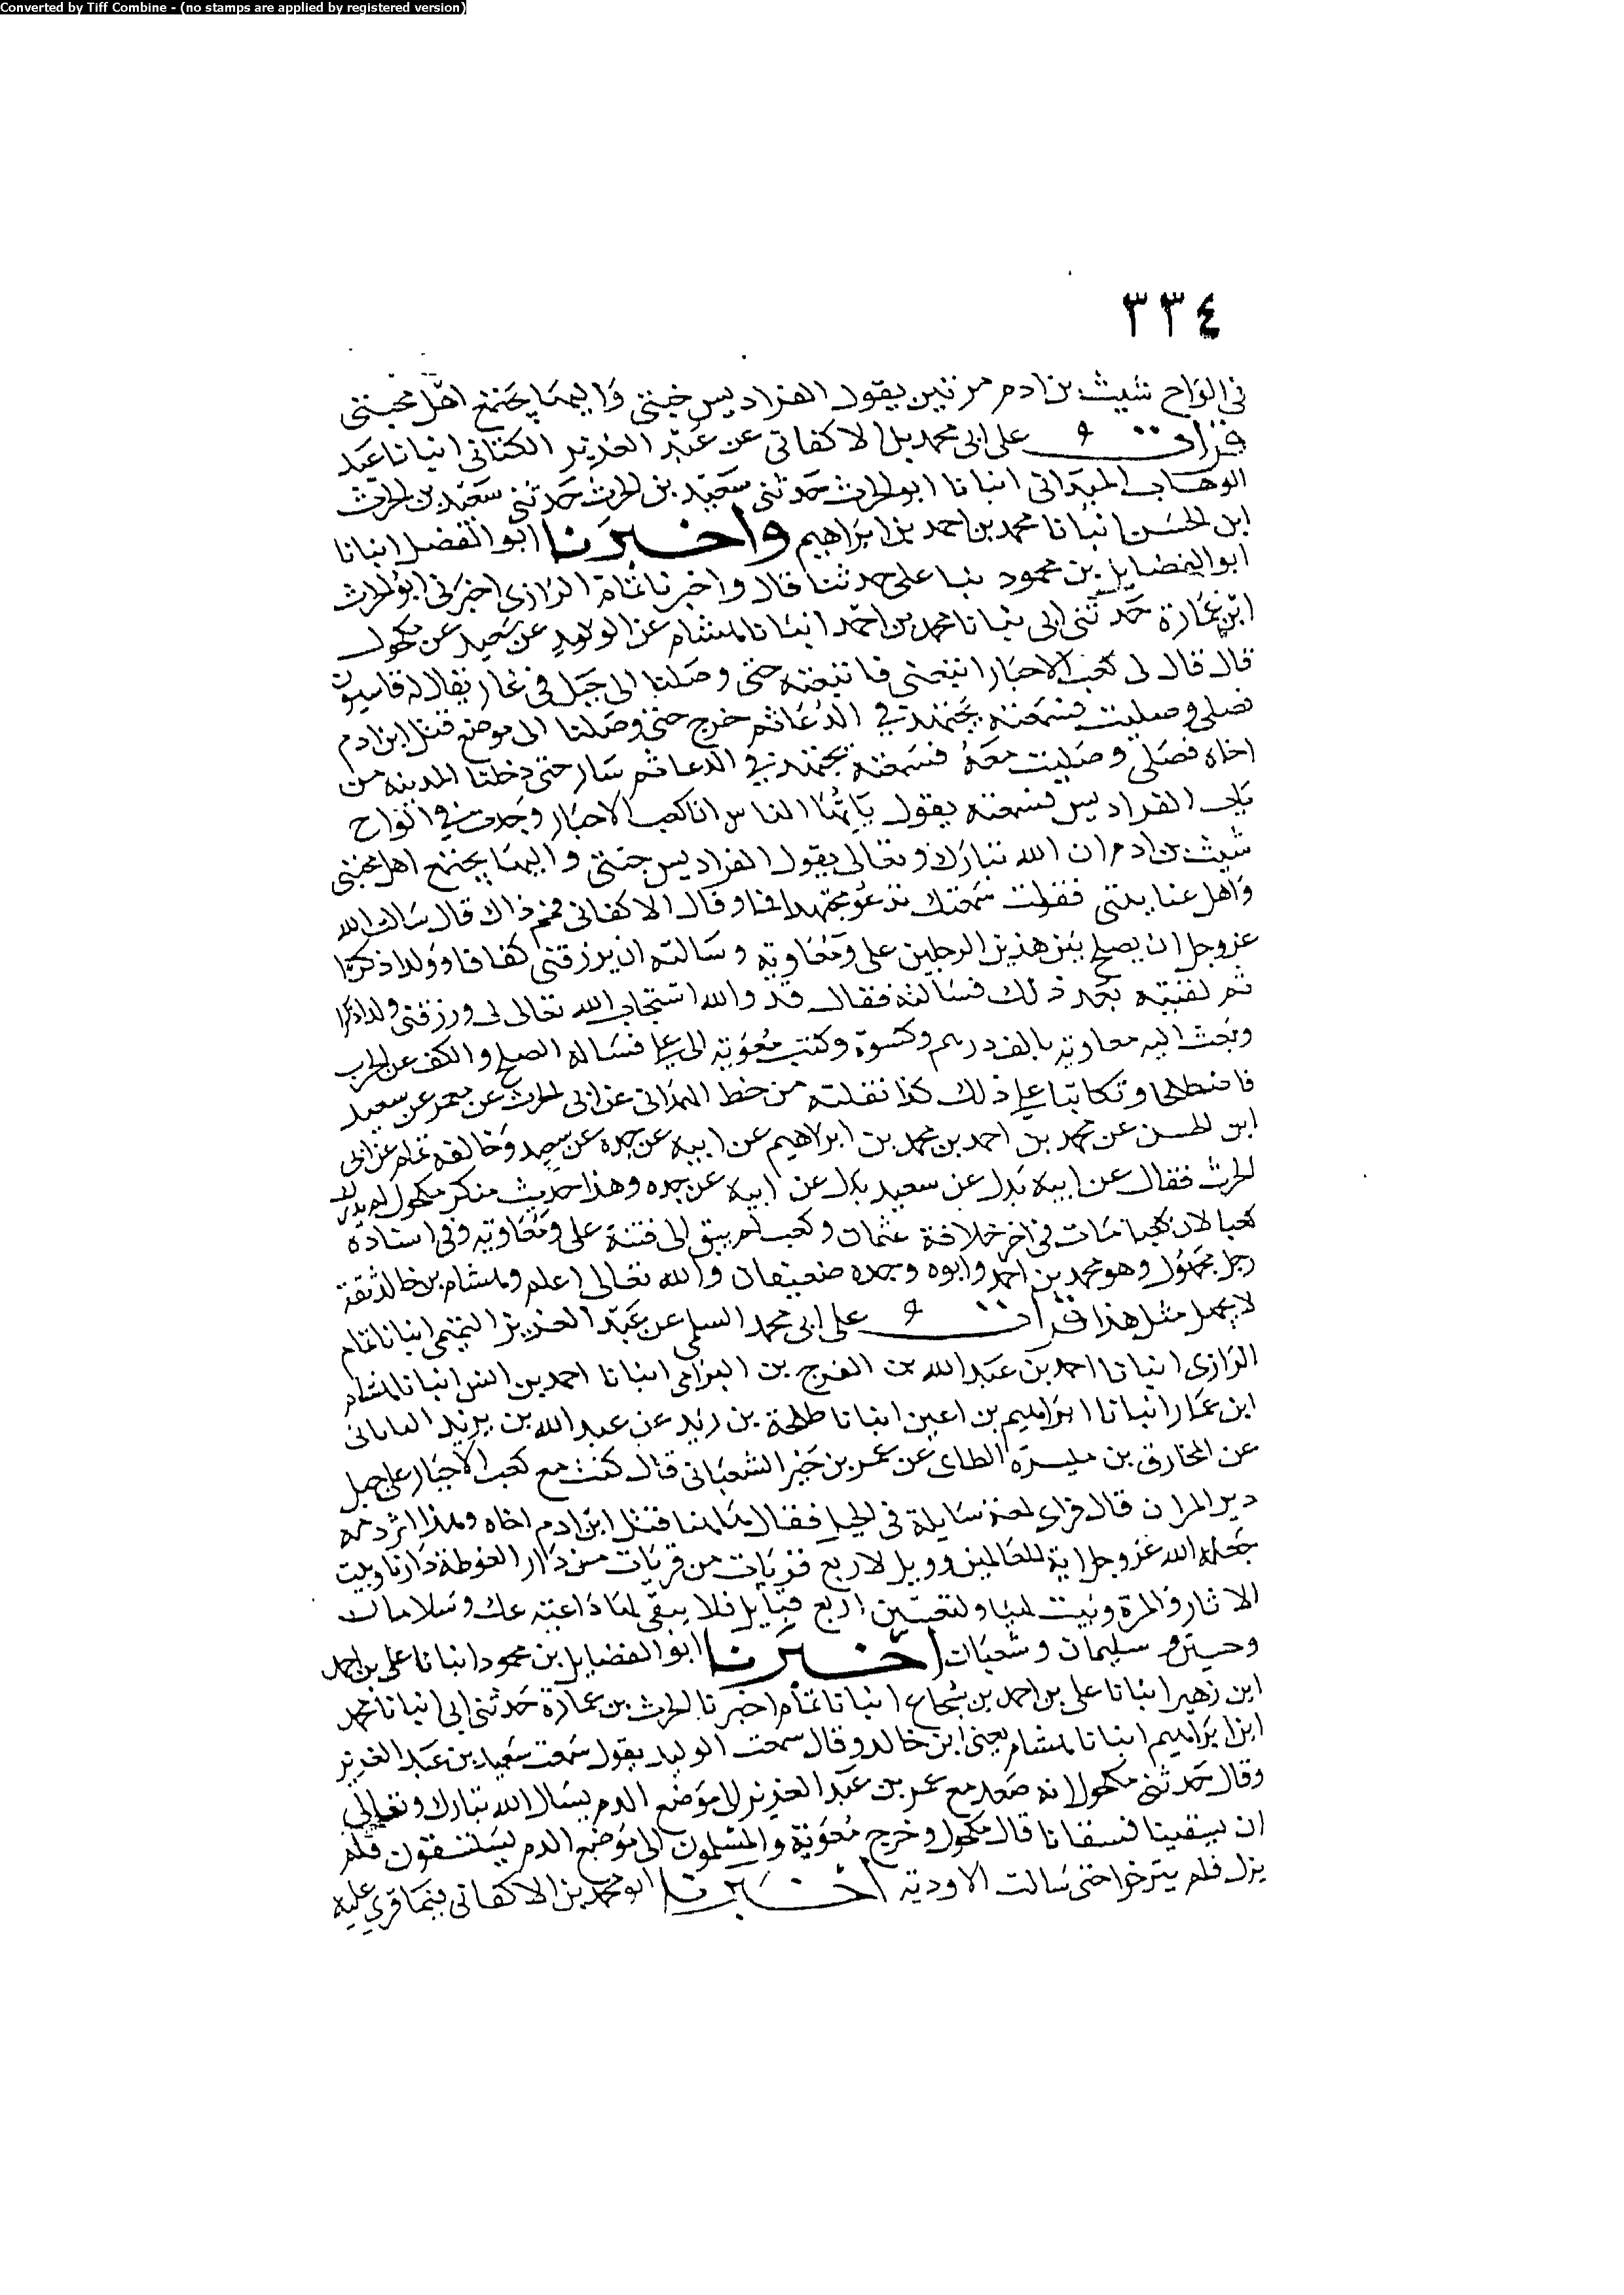 Converted by Tiff Combine - (no stamps are applied by registered version)
٣٣٤
في الواح شيث بن ادم مرتين يقول الفراديس جنتي واليها يجتمع اهل محبتي
قرات على ابي محمد بن الاكفاني عن عبد العزيز الكتاني انبانا عبد
الوهاب الميداني انبانا ابو الحرث حدثني سعيد بن الحرث حدثني سعيد بن الحرث
ابن الحسن انبانا محمد بن احمد بن ابراهيم واخبرنا ابو الفضل انبانا
ابو الفضايل بن محمود نبا على حدثنا قال واخبرنا تمام الرازي اخبرني ابو الحرث
ابن عمارة حدثني ابي نبانا محمد بن احمد انبانا هشام عن الوليد عن سعيد عن مكحول
قال قال لي كعب الاحبار اتبعني فاتبعته حتى وصلنا الى جبل في غار يقال له قاسيون
فصلى وصليت فسمعته يجتهد في الدعا ثم خرج حتى وصلنا الى موضع قتل ابن ادم
اخاه فصلى وصليت معه فسمعته يجتهد في الدعا ثم سار حتى دخلنا المدينه من
باب الفراديس فسمعته يقول يايها الناس انا كعب الاحبار وجدت في الواح
شيث بن ادم ان الله تبارك وتعالى يقول الفراديس جنتي واليها يجتمع اهل محبتي
واهل عنايتي فقلت سمعتك تدعو مجتهدا وقال الاكفاني ففيم ذاك قال سالت الله
عز وجل ان يصلح بين هذين الرجلين علي ومعاوية وسالته ان يرزقني كفافا وولدا ذكرا
ثم لقيته بعد ذلك فسالته فقال قد والله استجاب الله تعالى لي ورزقني ولدا ذكرا
وبعث اليه معاوية بالف درهم وكسوة وكتب معوية الى علي فساله الصلح والكف عن الحرب
فاصطلحا وتكاتبا على ذلك كذا نقلته من خط الميداني عن ابي الحرث عن سعيد
ابن الحسن عن محمد بن احمد بن محمد بن ابراهيم عن ابيه عن جده عن سعيد وخالفه تمام عن ابي
الحرث فقال عن ابيه بدل عن سعيد بدل عن ابيه عن جده وهذا حديث منكر مكحول لم يدرك
كعبا لان كعبا مات في اخر خلافة عثمان وكعب لم يبق الى فتنة علي ومعاوية وفي اسناده
رجل مجهول وهو محمد بن احمد وابوه وجده ضعيفان والله تعالى اعلم وهشام بن خالد ثقة
لا يحمل مثل هذا قرات على ابي محمد السلمي عن عبد العزيز التميمي انبانا تمام
الرازي انبانا احمد بن عبد الله بن الفرج بن البرامي انبانا احمد بن انس انبانا هشام
ابن عمار انبانا ابراهيم بن اعين انبانا طلحة بن زيد عن عبد الله بن يزيد
عن المخارق بن ميسرة الطاي عن عمر بن خير الشعباني قال كنت مع كعب الاحبار على جبل
دير المران قال فراى لمعة سايلة في الجبل فقال هاهنا قتل ابن ادم اخاه وهذا اثر دمه
جعله الله عز وجل اية للعالمين وويل لاربع قريات من قريات من دار الغوطة داريا وبيت
الاثار والمرة وبيت لهيا ولتعتين اربع قبايل فلا يبقى لها داعية عك وسلامان
وخشين سليمان وشعبان اخبرنا ابو الفضايل بن محمود انبانا علي بن احمد
ابن زهير انبانا علي بن احمد بن شجاع انبانا تمام اخبرنا الحرث بن عمارة حدثني ابي انبانا محمد
ابن ابراهيم انبانا هشام يعني ابن خالد وقال سمعت الوليد يقول سمعت سعيد بن عبد العزيز
وقال حدثني مكحول انه صعد مع عمر بن عبد العزيز الى موضع الدم يسال الله تبارك وتعالى
ان يسقينا فسقانا قال مكحول وخرج معوية والمسلمون الى موضع الدم يستسقون فلم
يزل فلم يبرحوا حتى سالت الاودية اخبرنا ابو محمد بن الاكفاني فيما قري عليه